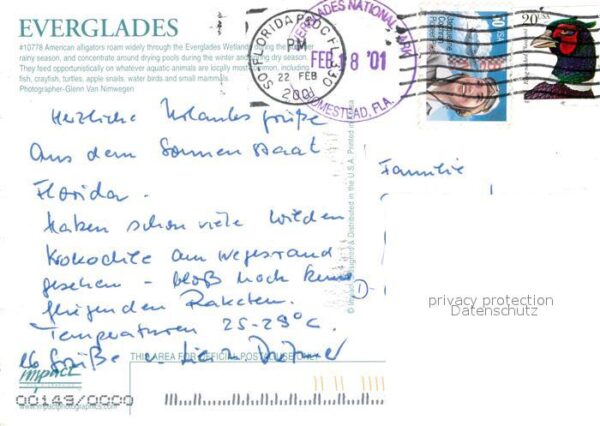 EVERGLADES
#10778 American alligators roam widely through the Everglades Wetlands during the
rainy season, and concentrate around drying pools during the winter and spring dry season.
They feed opportunistically on whatever aquatic animals are locally most common, including
fish, crayfish, turtles, apple snails, water birds and small mammals.
Photographer-Glenn Van Nimwegen
SO. FLORIDA P&DC FL 330
PM
22 FEB
2001
EVERGLADES NATIONAL PARK
FEB 18 '01
HOMESTEAD, FLA.
50 USA
Jacqueline Cochran
Pioneer Pilot
20 USA
Herzliche Urlaubsgrüße
Aus dem Sonnenstaat
Florida.
Haben schon viele wilden
Krokodile am Wegesrand
gesehen - bloß noch keine
fliegenden Raketen.
Temperaturen 25-29°C.
Grüße
Familie
Designed & Distributed in the U.S.A. Printed in
privacy protection
Datenschutz
THIS AREA FOR OFFICIAL POSTAL USE ONLY
impact
00149/0000
www.impactphotographics.com